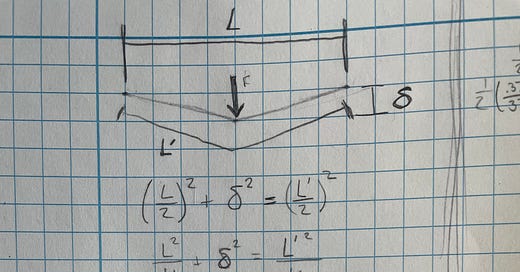 L
F
δ
L'
(L/2)² + δ² = (L'/2)²
L²/ + δ² = L'²/
1/2 (.3